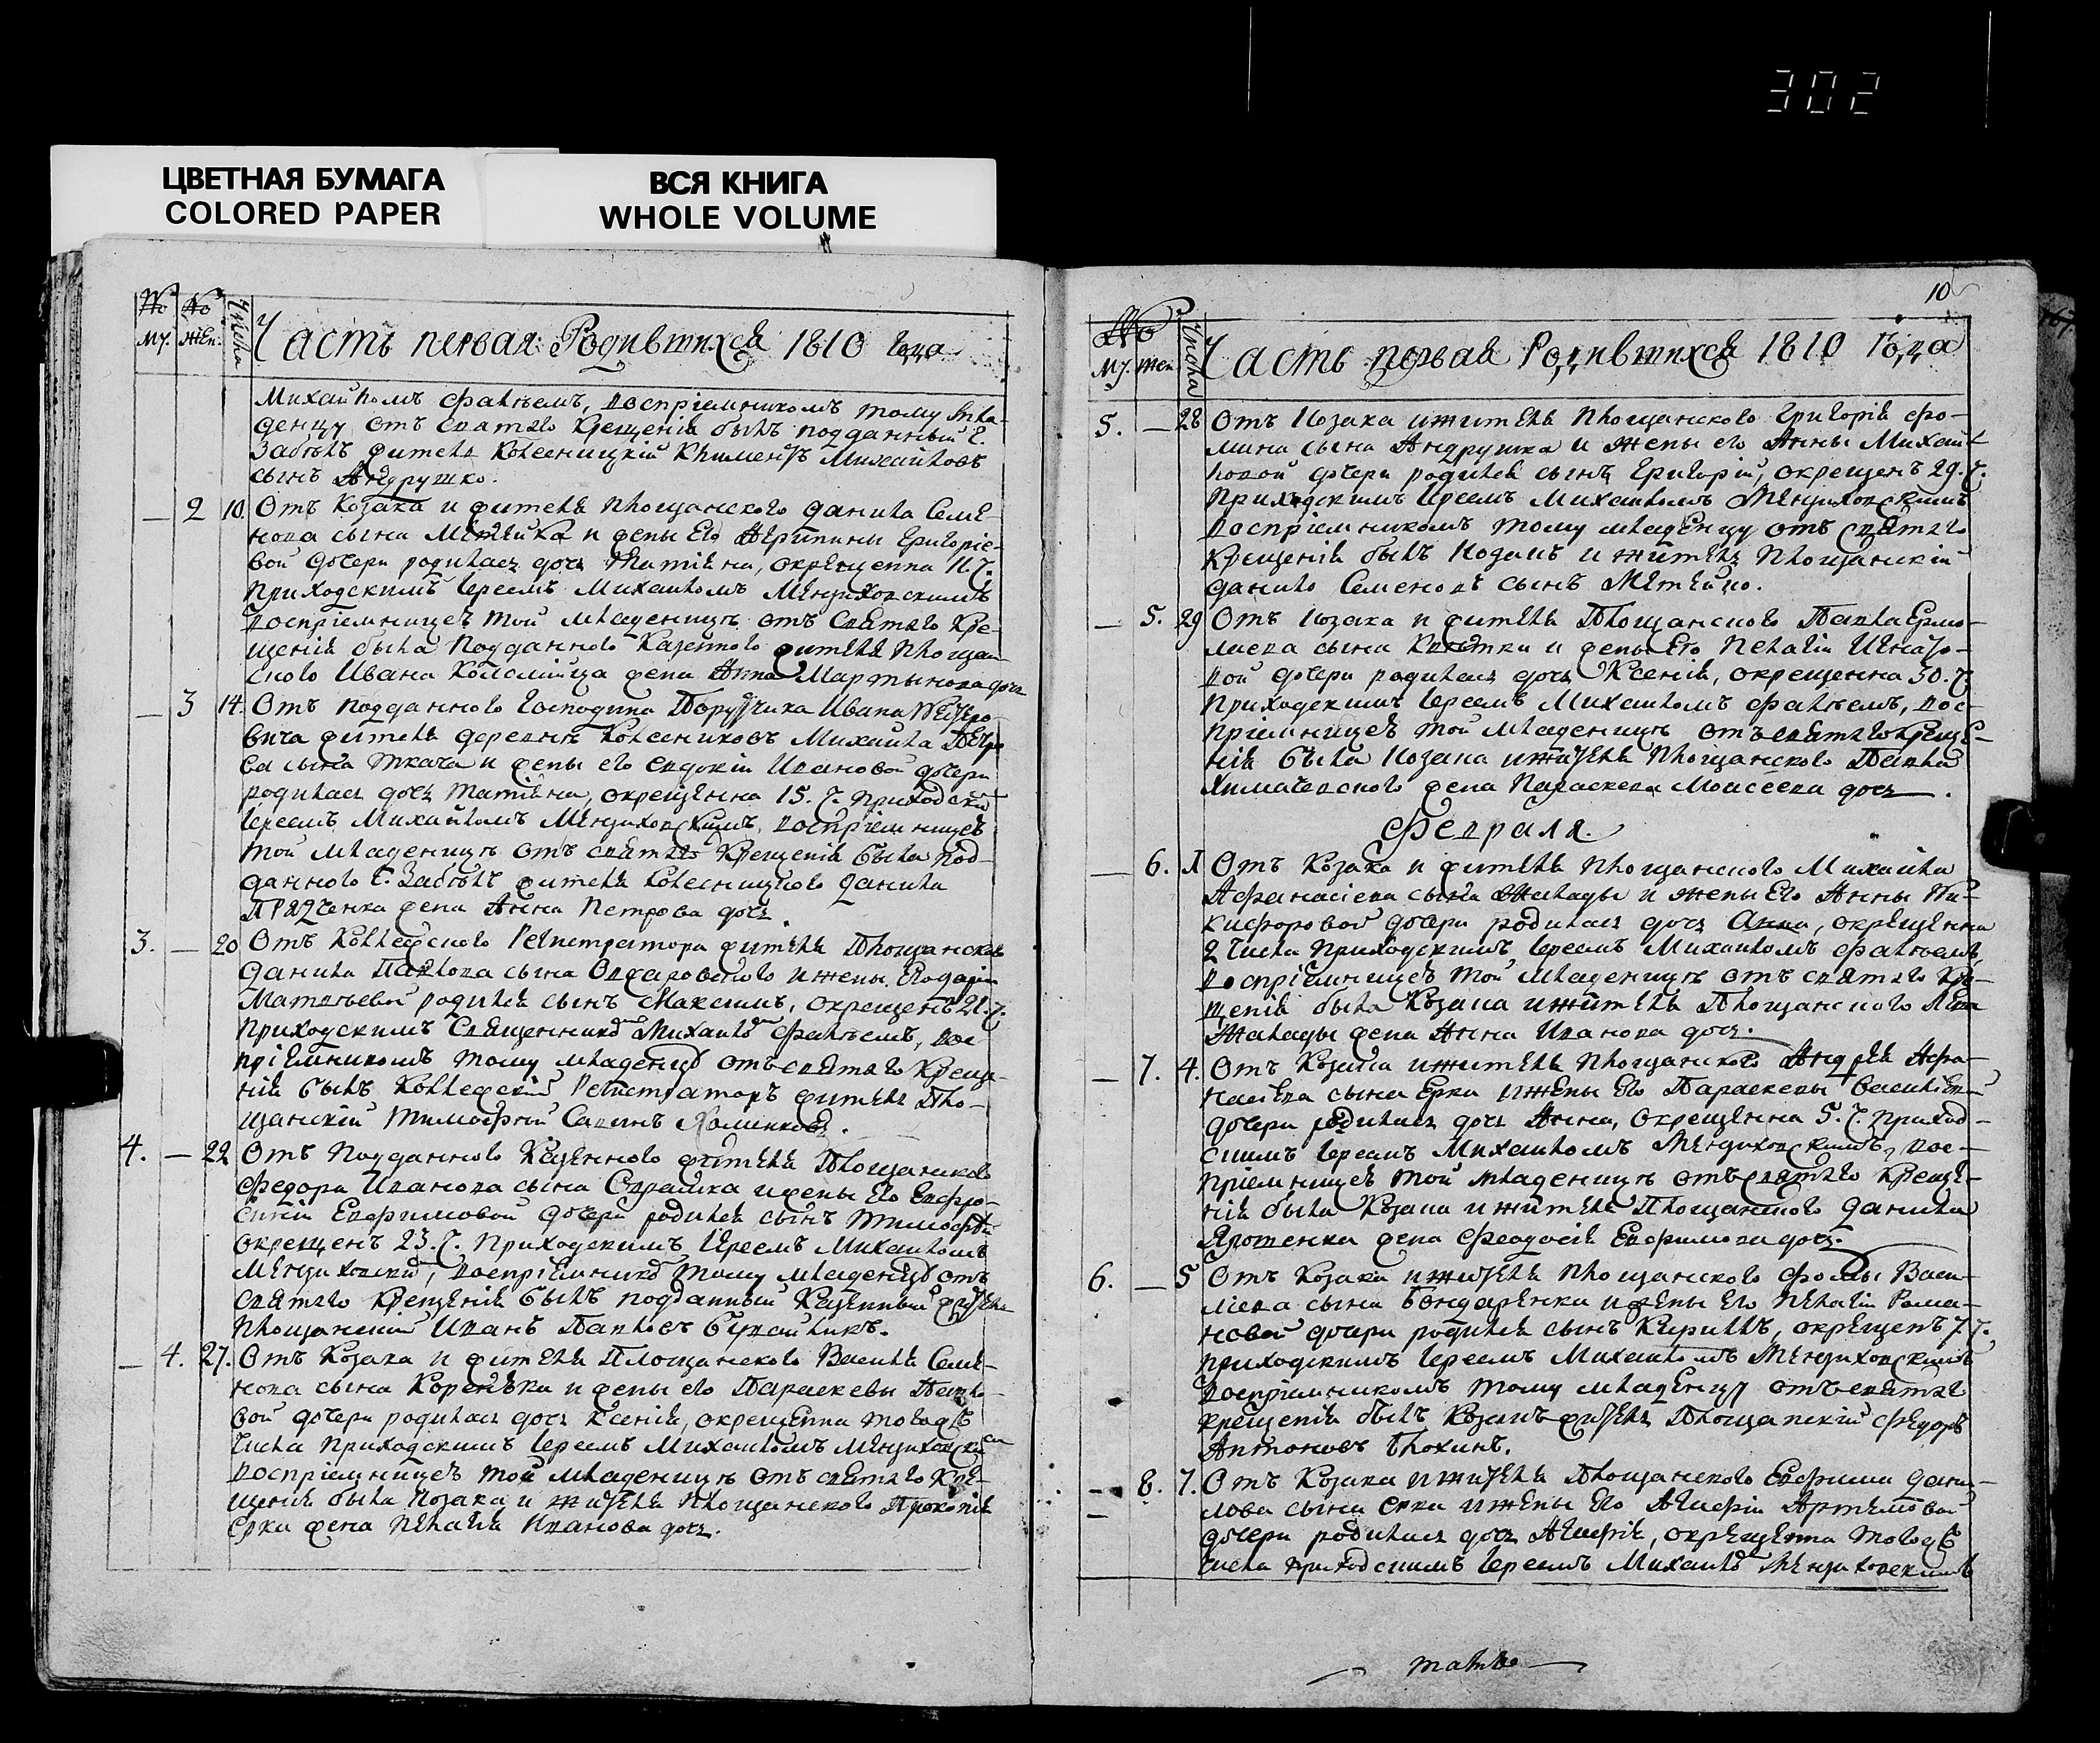 302
ЦВЕТНАЯ БУМАГА
COLORED PAPER
ВСЯ КНИГА
WHOLE VOLUME
№ № Числа
му. жен.
Часть первая Родившихся 1810 года
Михайломъ Фалѣемъ, воспріемникомъ тому мла-
денцу отъ святаго крещенія былъ подданный Г.
Забѣлъ житель Колесницкій Климентъ Михайловъ
сынъ Андрушко.
— 2 10. Отъ Козака и жителя Площанского Данила Семе-
нова сына Метейка и жены его Агрипины Григоріе-
вой дочери родилась дочь Татіяна, окрещенна 11. ч.
приходскимъ Іереемъ Михаиломъ Мендиховскимъ
воспріемницею той младеницѣ отъ святаго кре-
щенія была подданного Казенного жителя Площан-
ского Ивана Коломійца жена Анна Мартынова дочь
— 3 14. Отъ подданного Господина Поручика Ивана
вича жителя деревни Колесниковъ Михайла Петро
ва сына Ткача и жены его Евдокіи Ивановой дочери
родилась дочь Татіяна, окрещенна 15. ч. приходски
Іереемъ Михайломъ Мендиховскимъ, воспріемницею
той младеницѣ отъ святаго крещенія была под-
данного Г. Забѣлъ жителя Колесницкого Данила
жена Анна Петрова дочь.
3. — 20 Отъ Коллежского Регистратора жителя Площанского
Данила Павлова сына Овхаровского и жены его Даріи
Матвѣевой родился сынъ Максимъ, окрещенъ 21. ч.
приходскимъ Священнико Михаило Фалѣемъ, вос
пріемникомъ тому младенцу отъ святаго креще-
нія былъ Коллежскій Регистраторъ житель Пло-
щанскій Тимофей Савинъ
4. — 22 Отъ подданного Казенного жителя Площанского
Федора Иванова сына и жены его Евфро-
синіи Евфимовой дочери родился сынъ Тимофей
окрещенъ 23. ч. приходскимъ Іереемъ Михаиломъ
Мендиховски, воспріемнико тому младенцу отъ
святаго крещенія былъ подданный Казенный житель
Площанскій Иванъ Павловъ
— 4. 27. Отъ Козака и жителя Площанского Василя Семе-
нова сына Коренѣка и жены его Параскевы Павло-
вой дочери родилась дочь Ксенія, окрещенна тогожъ
числа приходскимъ Іереемъ Михаиломъ Мендиховски
воспріемницею той младеницѣ отъ святаго кре-
щенія была козака и жителя Площанского Прокопія
Ерки жена Пелагія Иванова дочь.
10
№ Числа
му. жен
Часть первая Родившихся 1810 Года
5. — 28 Отъ козака и жителя Площанского Григорія Фо-
мина сына Андрушка и жены его Анны Михай-
ловой дочери родился сынъ Григорій, окрещенъ 29. ч.
приходскимъ Іереемъ Михаиломъ Мендиховскимъ
воспріемникомъ тому младенцу отъ святаго
крещенія былъ козакъ и житель Площанскій
Данило Семеновъ сынъ Метейко.
— 5. 29 Отъ козака и жителя Площанского Павла Ермо-
лаева сына и жены его Пелагіи
вой дочери родилась дочь Ксенія, окрещенна 30. ч.
приходскимъ Іереемъ Михаиломъ Фалѣемъ, вос-
пріемницею той младеницѣ отъ святаго креще-
нія была козака и жителя Площанского Павла
Химачевского жена Параскева Моисеева дочь.
Февраля.
— 6. 1 Отъ Козака и жителя Площанского Михайла
Афанасіева сына Жалады и жены его Анны Ни-
кифоровой дочери родилась дочь Анна, окрещенна
2 числа приходскимъ Іереемъ Михаиломъ Фалѣемъ,
воспріемницею той младеницѣ отъ святаго кре-
щенія была Козака и жителя Площанского
Жалады жена Анна Иванова дочь.
— 7. 4. Отъ Козака и жителя Площанского Андрея Афа-
насіева сына Ерки и жены его Параскевы Василіевой
дочери родилась дочь Анна, окрещенна 5. ч. приход-
скимъ Іереемъ Михаиломъ Мендиховскимъ, вос-
пріемницею той младеницѣ отъ святаго креще-
нія была Козака и жителя Площанского Данила
Яротенки жена Феодосія Евфимова дочь.
6. — 5 Отъ Козака и жителя Площанского Фомы Васи-
ліева сына Бондаренки и жены его Пелагіи Рома-
новой дочери родился сынъ Кирилъ, окрещенъ 7 ч.
приходскимъ Іереемъ Михаиломъ Мендиховскимъ
воспріемникомъ тому младенцу отъ святаго
крещенія былъ Козакъ житель Площанскій Федоръ
Антоновъ Блохинъ.
— 8. 7. Отъ Козака и жителя Площанского Евфима Дани-
лова сына Ерки и жены его Агафіи Артемовой
дочери родилась дочь Агафія, окрещенна тогожъ
числа приходскимъ Іереемъ Михаило Мендиховскимъ